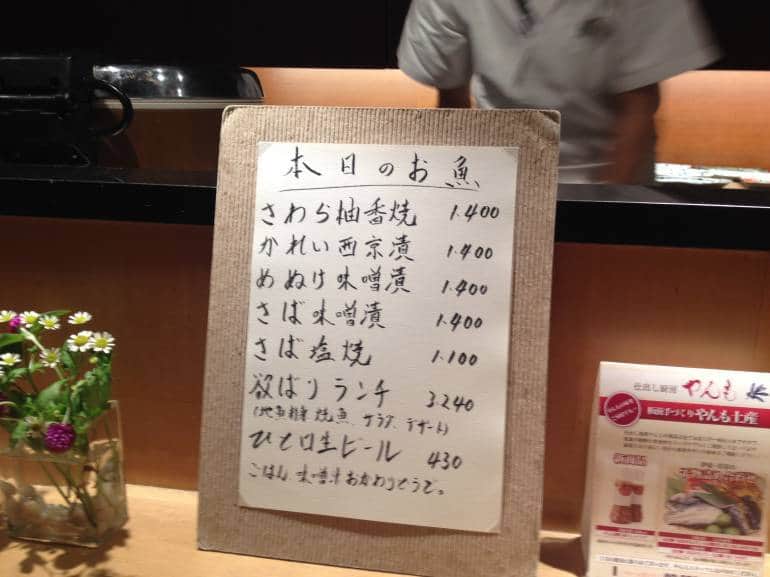 本日のお魚
さわら柚香焼 1.400
かれい西京漬 1.400
めぬけ味噌漬 1.400
さば味噌漬 1.400
さば塩焼 1.100
欲ばりランチ 3.240
焼魚、サラダ、デザート)
ひと口生ビール 430
ごはん、味噌汁おかわりどうぞ。
仕出し厨房 やんも
板前手づくりやんも土産